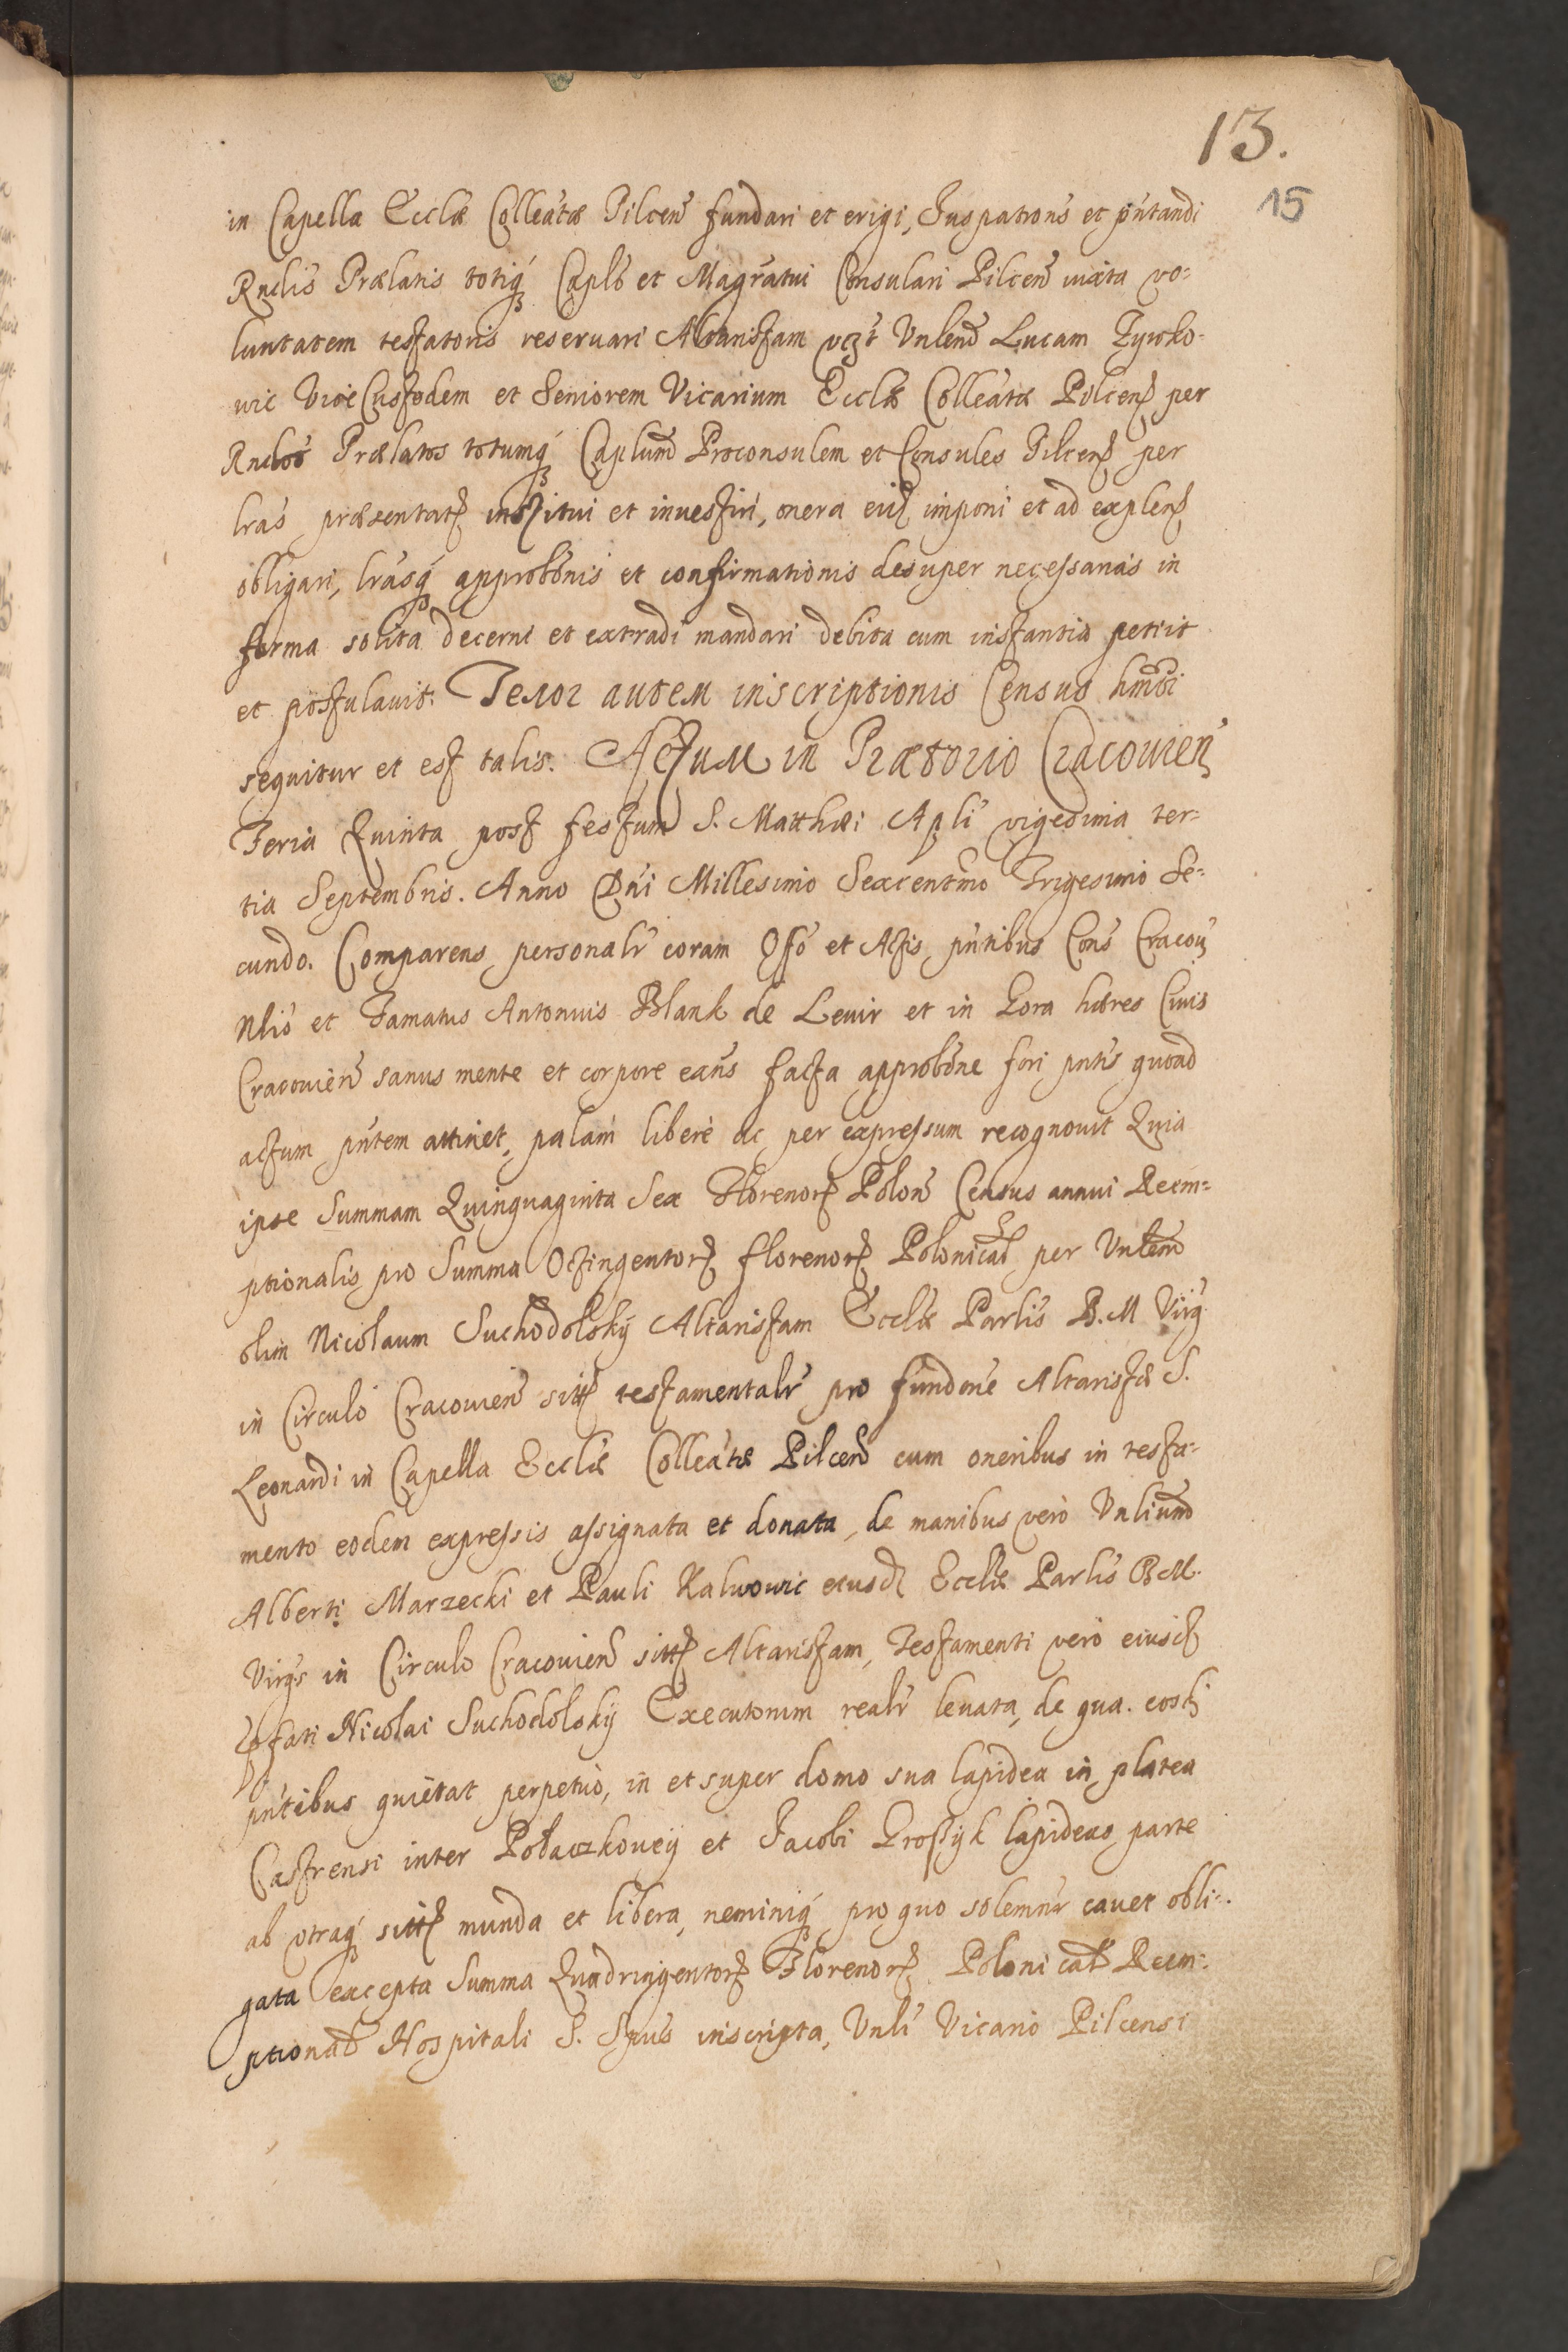 13.
15
in Capella Eccliæ Colleatæ Pilcen fundari et erigi, Juspatrons et pntandi
Rndis Prælatis totiq Caplo et Magratui Consulari Pilcen iuxta vo-
luntatem testatoris reseruari Altaristam vczt Vnlend Lucam Zyrko-
wic ViceCustodem et Seniorem Vicarium Eccliæ Colleatæ Pilcen per
Rndos Prælatos totumq Caplum Proconsulem et Consules Pilcen per
lras præsentat institui et inuestiri, onera eius imponi et ad explen
obligari, lrasq approbonis et confirmationis desuper necessarias in
forma solita decerni et extradi mandari debita cum instantia petiit
et postulauit. Tenor autem inscriptionis Census hmoi
sequitur et est talis. Actum in Prætorio Cracouien
Feria Quinta post festum S. Matthæi Apli vigesima ter-
tia Septembris. Anno Dni Millesimo Sexcentmo Trigesimo Se-
cundo. Comparens personalr coram Offo et Actis pntibus Cons Cracou
Nlis et Famatus Antonius Blank de Leuir et in Gora hæres Ciuis
Cracouien sanus mente et corpore exns facta approbone fori pntis quoad
actum pntem attinet, palam libere ac per expressum recognouit Quia
ipse Summam Quinquaginta Sex Florenor Polon Census annui Reem-
ptionalis pro Summa Octingentor florenor Polonical per Vnlem
olim Nicolaum Suchodolskÿ Altaristam Eccliæ Parlis B. M Virg
in Circulo Cracouien sitt testamentalr pro fundone Altaristæ S.
Leonardi in Capella Eccliæ Colleatæ Pilcen cum oneribus in testa-
mento eodem expressis assignata et donata, de manibus verò Vnlium
Alberti Marzecki et Pauli Kalwowic eiusd Eccliæ Parlis B M.
Virgs in Circulo Cracouien sitt Altaristam, Testamenti verò eiusd
pfati Nicolai Suchodolskÿ Executorum realr leuata, de qua. eosd
pntibus quietat perpetuò, in et super domo sua lapidea in platea
Castrensi inter Polaczkoueÿ et Jacobi Grossÿk lapideas parte
ab vtraq sitt munda et libera, neminiq pro quo solemnr cauet obli-
gata excepta Summa Quadringentor Florenor Polonical Reem-
ptional Hospitali S. Spus inscripta, Vnli Vicario Pilcensi